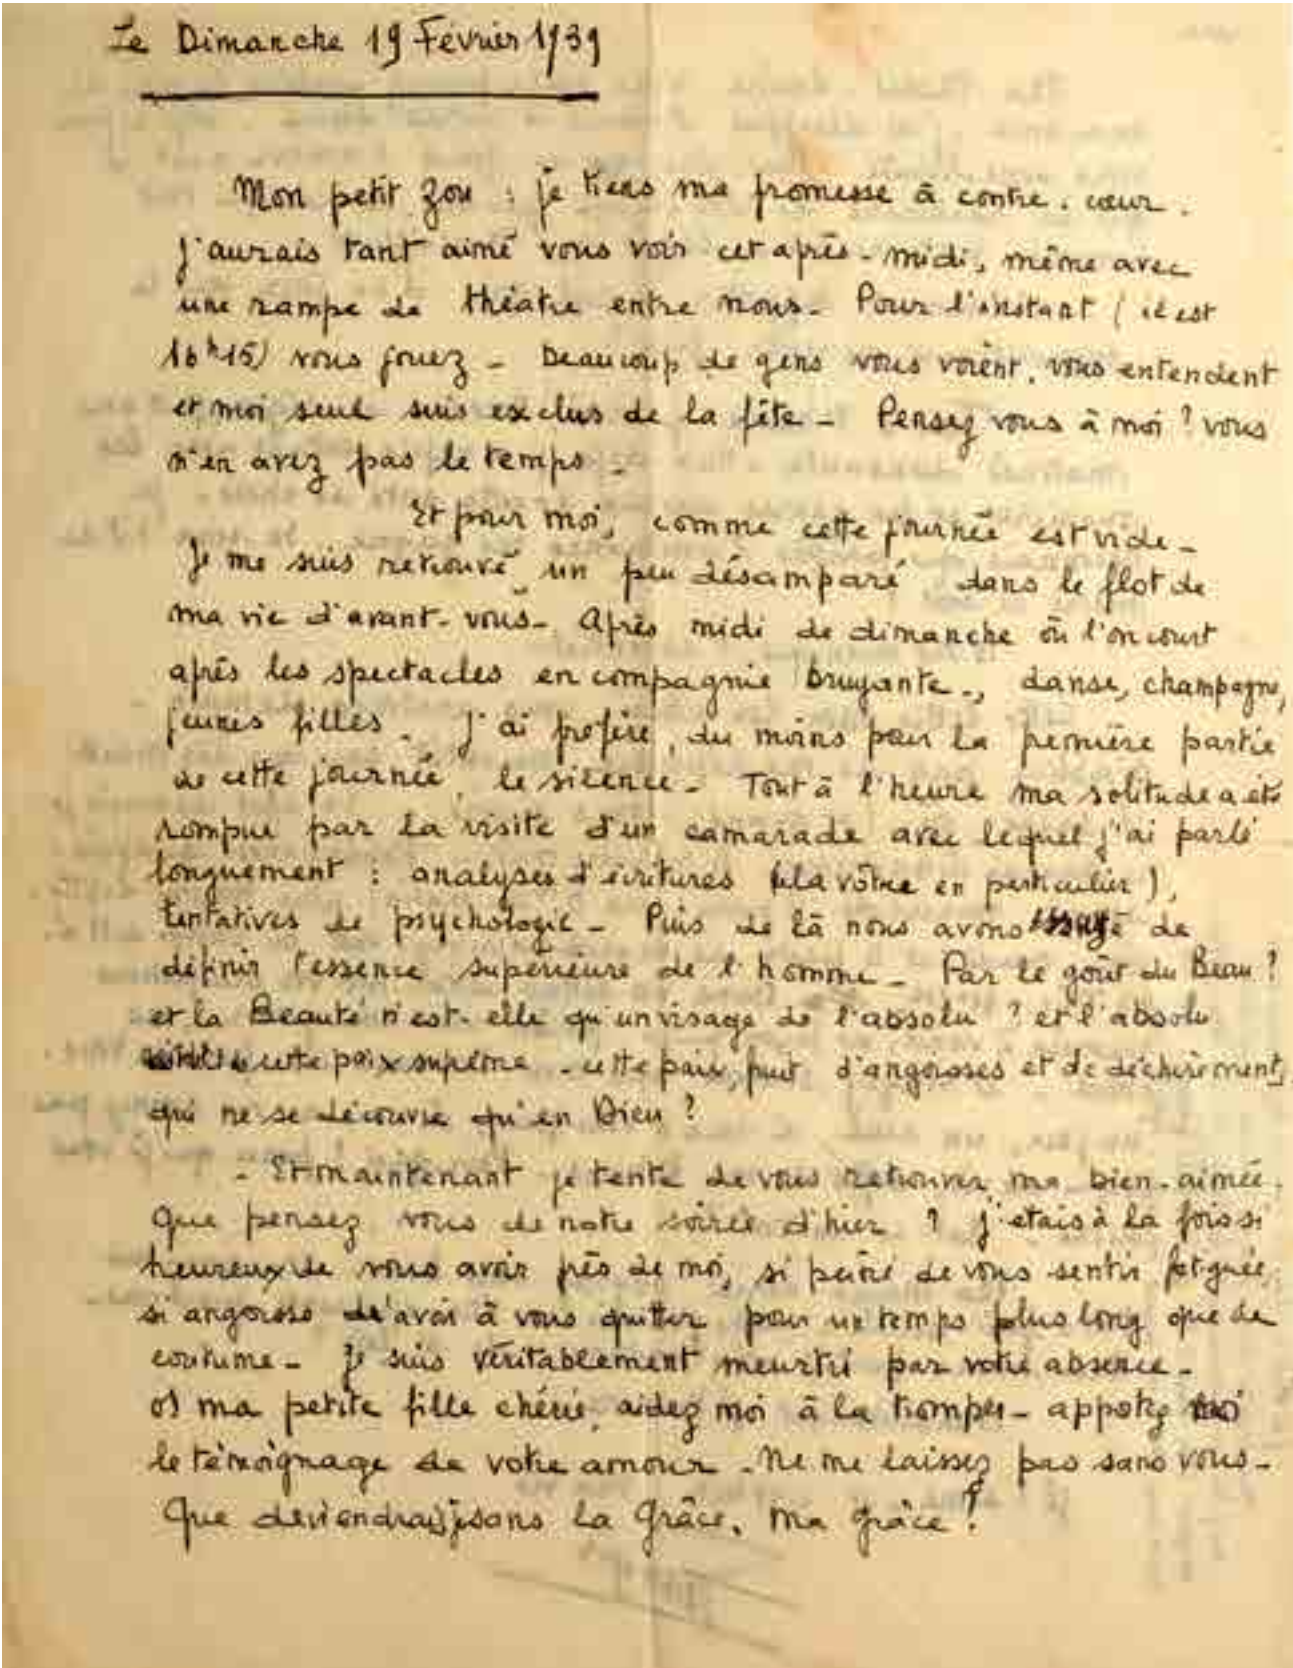 Le Dimanche 19 Février 1939
Mon petit Zou : je tiens ma promesse à contre-cœur.
J'aurais tant aimé vous voir cet après-midi, même avec
une rampe de théatre entre nous - Pour l'instant (il est
16h15) vous jouez - Beaucoup de gens vous voient, vous entendent
et moi seul suis exclus de la fête - Pensez vous à moi ? vous
n'en avez pas le temps -
Et pour moi, comme cette journée est vide -
Je me suis retrouvé, un peu désamparé, dans le flot de
ma vie d'avant-vous - Après midi de dimanche où l'on court
après les spectacles en compagnie bruyante, danse, champagne,
jeunes filles. J'ai préféré, du moins pour la première partie
de cette journée, le silence - Tout à l'heure ma solitude a été
rompue par la visite d'un camarade avec lequel j'ai parlé
longuement : analyses d'écritures (la vôtre en particulier),
tentatives de psychologie - Puis de là nous avons essayé de
définir l'essence supérieure de l'homme - Par le goût du Beau ?
et la Beauté n'est-elle qu'un visage de l'absolu ? et l'absolu
cette paix suprême - cette paix, fruit d'angoisses et de déchirement,
qui ne se découvre qu'en Dieu ?
- Et maintenant je tente de vous retrouver, ma bien-aimée.
Que pensez vous de notre soirée d'hier ? J'étais à la fois si
heureux de vous avoir près de moi, si peiné de vous sentir fatiguée,
si angoissé d'avoir à vous quitter pour un temps plus long que de
coutume - Je suis véritablement meurtri par votre absence -
ma petite fille chérie, aidez moi à la tromper - apportez moi
le témoignage de votre amour - Ne me laissez pas sans vous -
Que deviendrais-je sans la Grâce, ma Grâce ?